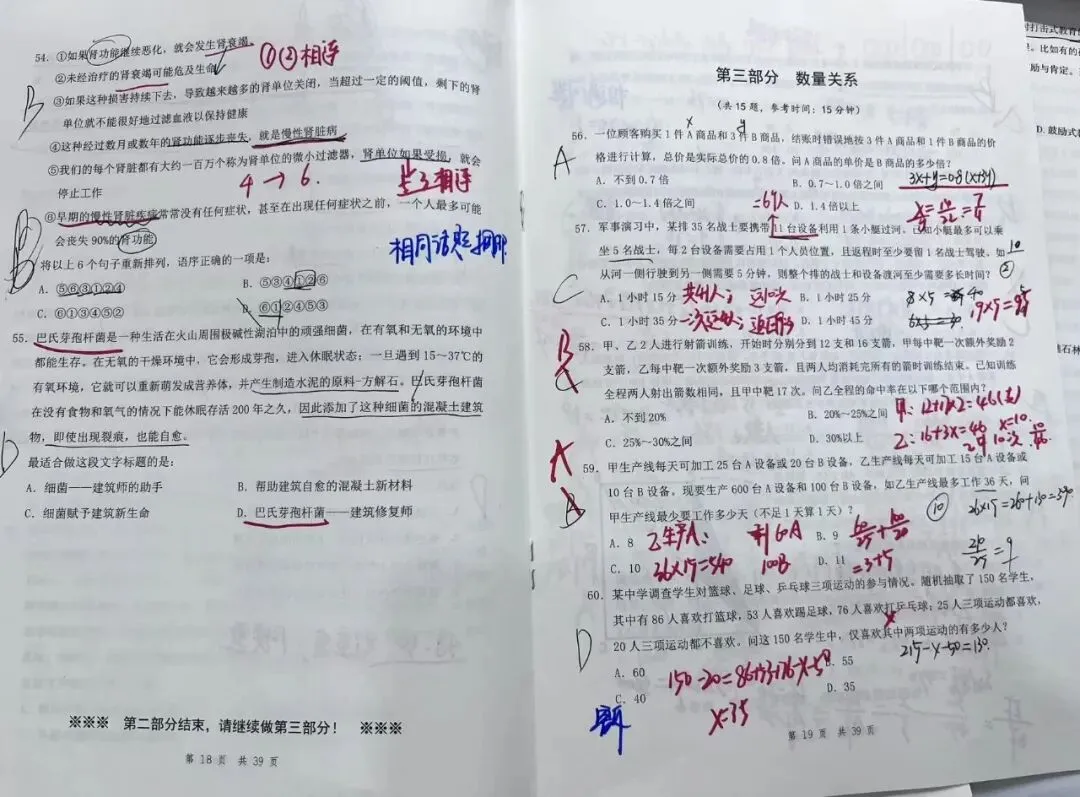 54. ①如果肾功能继续恶化，就会发生肾衰竭
①②相连
②未经治疗的肾衰竭可能危及生命
B
③如果这种损害持续下去，导致越来越多的肾单位关闭，当超过一定的阈值，剩下的肾
单位就不能很好地过滤血液以保持健康
④这种经过数月或数年的肾功能逐步丧失，就是慢性肾脏病
⑤我们的每个肾脏都有大约一百万个称为肾单位的微小过滤器，肾单位如果受损，就会
停止工作
4→6.
相连
⑥早期的慢性肾脏疾病常常没有任何症状，甚至在出现任何症状之前，一个人最多可能
会丧失90%的肾功能
相同话题
将以上6个句子重新排列，语序正确的一项是：
A. ⑤⑥③①②④
B. ⑤③④①②⑥
C. ⑥①③④⑤②
D. ⑥①②④⑤③
55. 巴氏芽孢杆菌是一种生活在火山周围极碱性湖泊中的顽强细菌，在有氧和无氧的环境中
都能生存。在无氧的干燥环境中，它会形成芽孢，进入休眠状态；一旦遇到15～37℃的
有氧环境，它就可以重新萌发成营养体，并产生制造水泥的原料-方解石。巴氏芽孢杆菌
在没有食物和氧气的情况下能休眠存活200年之久，因此添加了这种细菌的混凝土建筑
物，即使出现裂痕，也能自愈。
D
最适合做这段文字标题的是：
A. 细菌——建筑师的助手
B. 帮助建筑自愈的混凝土新材料
C. 细菌赋予建筑新生命
D. 巴氏芽孢杆菌——建筑修复师
※※※ 第二部分结束，请继续做第三部分！ ※※※
第 18 页 共 39 页
第三部分 数量关系
（共 15 题，参考时间：15 分钟）
x y
56. 一位顾客购买1件A商品和3件B商品，结账时错误地按3件A商品和1件B商品的价
A
格进行计算，总价是实际总价的0.8倍。问A商品的单价是B商品的多少倍？
A. 不到0.7倍
B. 0.7～1.0倍之间
3x+y=0.8(x+3y)
C. 1.0～1.4倍之间
D. 1.4倍以上
=6人
57. 军事演习中，某排35名战士要携带11台设备利用1条小艇过河。已知小艇最多可以乘
坐5名战士，每2台设备需要占用1个人员位置，且返程时至少要留1名战士驾驶。如
从河一侧行驶到另一侧需要5分钟，则整个排的战士和设备渡河至少需要多长时间？
C
A. 1小时15分
共41人；
B. 1小时25分
C. 1小时35分
D. 1小时45分
58. 甲、乙2人进行射箭训练，开始时分别分到12支和16支箭，甲每中靶一次额外奖励2
B
支箭，乙每中靶一次额外奖励3支箭，且两人均消耗完所有的箭时训练结束。已知训练
全程两人射出箭数相同，且甲中靶17次。问乙全程的命中率在以下哪个范围内？
A. 不到20%
B. 20%～25%之间
甲：12+17×2=46(支)
C. 25%～30%之间
D. 30%以上
乙：16+3x=46 x=10.
A
59. 甲生产线每天可加工25台A设备或20台B设备，乙生产线每天可加工15台A设备或
10台B设备，现要生产600台A设备和100台B设备，如乙生产线最多工作36天，问
甲生产线最少要工作多少天（不足1天算1天）？
B
A. 8
乙生产A：
剩60A
B. 9
C. 10
36×15=540
100B
D. 11
=3+5
60. 某中学调查学生对篮球、足球、乒乓球三项运动的参与情况。随机抽取了150名学生，
其中有86人喜欢打篮球，53人喜欢踢足球，76人喜欢打乒乓球；25人三项运动都喜欢，
D
20人三项运动都不喜欢。问这150名学生中，仅喜欢其中两项运动的有多少人？
215-x-50=130
A. 60
B. 55
150-20=86+53+76-x-50
C. 40
D. 35
x=35
第 19 页 共 39 页